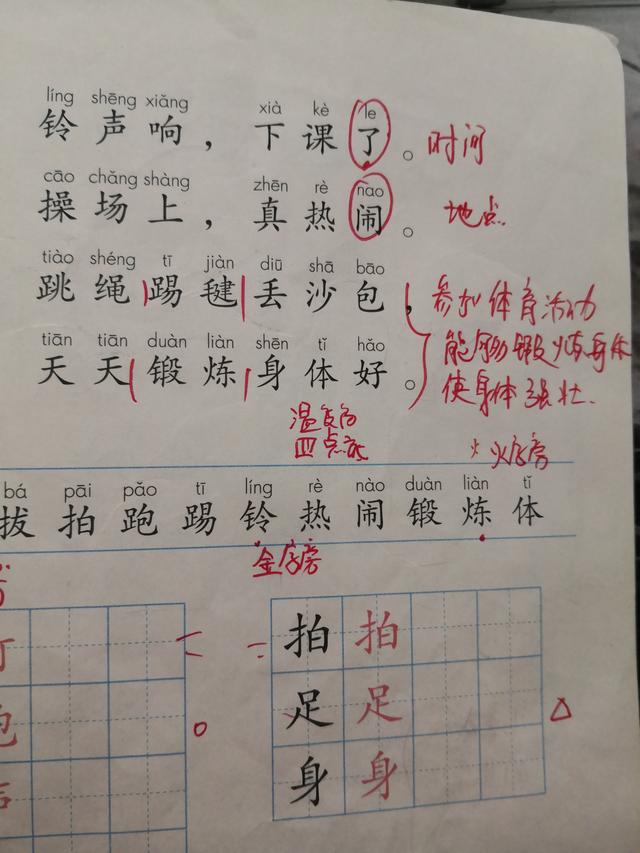 líng shēng xiǎng xià kè le
铃声响，下课了。时间
cāo chǎng shàng zhēn rè nao
操场上，真热闹。地点
tiào shéng tī jiàn diū shā bāo
跳绳踢毽丢沙包，参加体育活动
tiān tiān duàn liàn shēn tǐ hǎo
天天锻炼身体好。能够锻炼身体
使身体强壮.
四点底
火字旁
bá pāi pǎo tī líng rè nào duàn liàn tǐ
拔拍跑踢铃热闹锻炼体
金字旁
拍拍
足足
身身